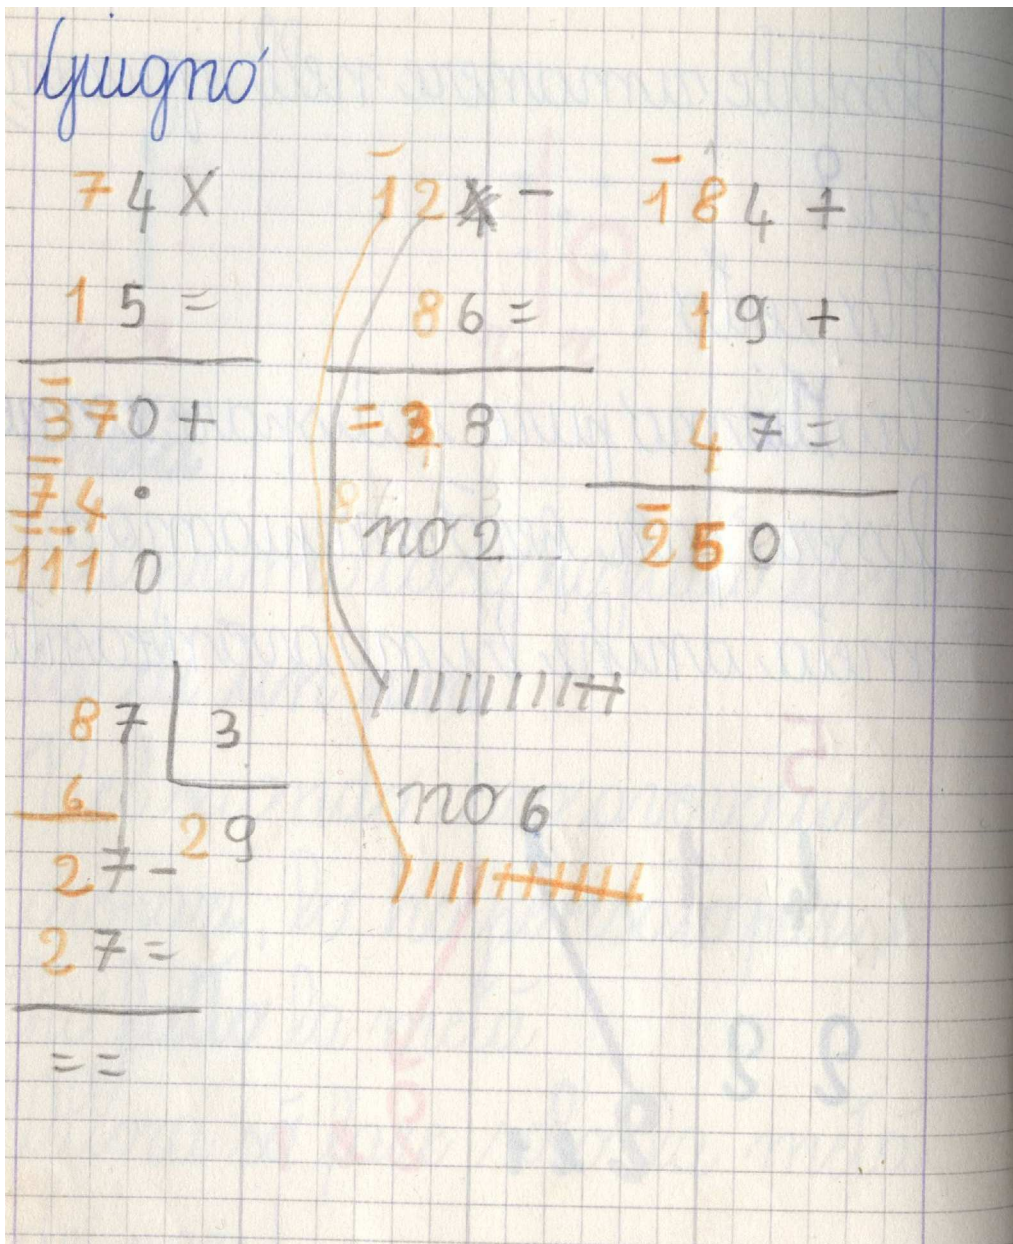 Giugno
74 X
15 =
370 +
74 •
1110
124 -
86 =
= 38
no 2
no 6
184 +
19 +
47 =
250
87 3
6 29
27 -
27 =
= =